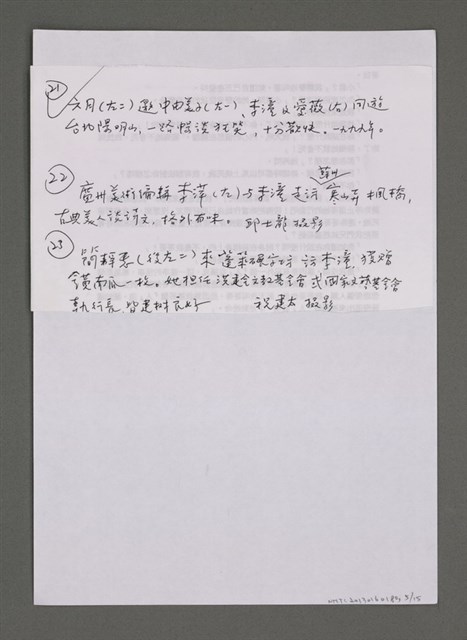 21
六月(左二)邀中由美子(左一)、李潼及愛薇(右)同遊
台北陽明山,一路暢談狂笑,十分歡快,一九九九年。
22
蘇州
廣州美術編輯李萍(左)与李潼走訪寒山寺楓橋,
古典美人談詩文,格外有味。邱士龍攝影
23
(後左二)來蓬萊碾字坊訪李潼,獲贈
金黃南瓜一枚。她担任洪建全文教基金會或國家文藝基金會
執行長,皆建樹良好 祝建太攝影